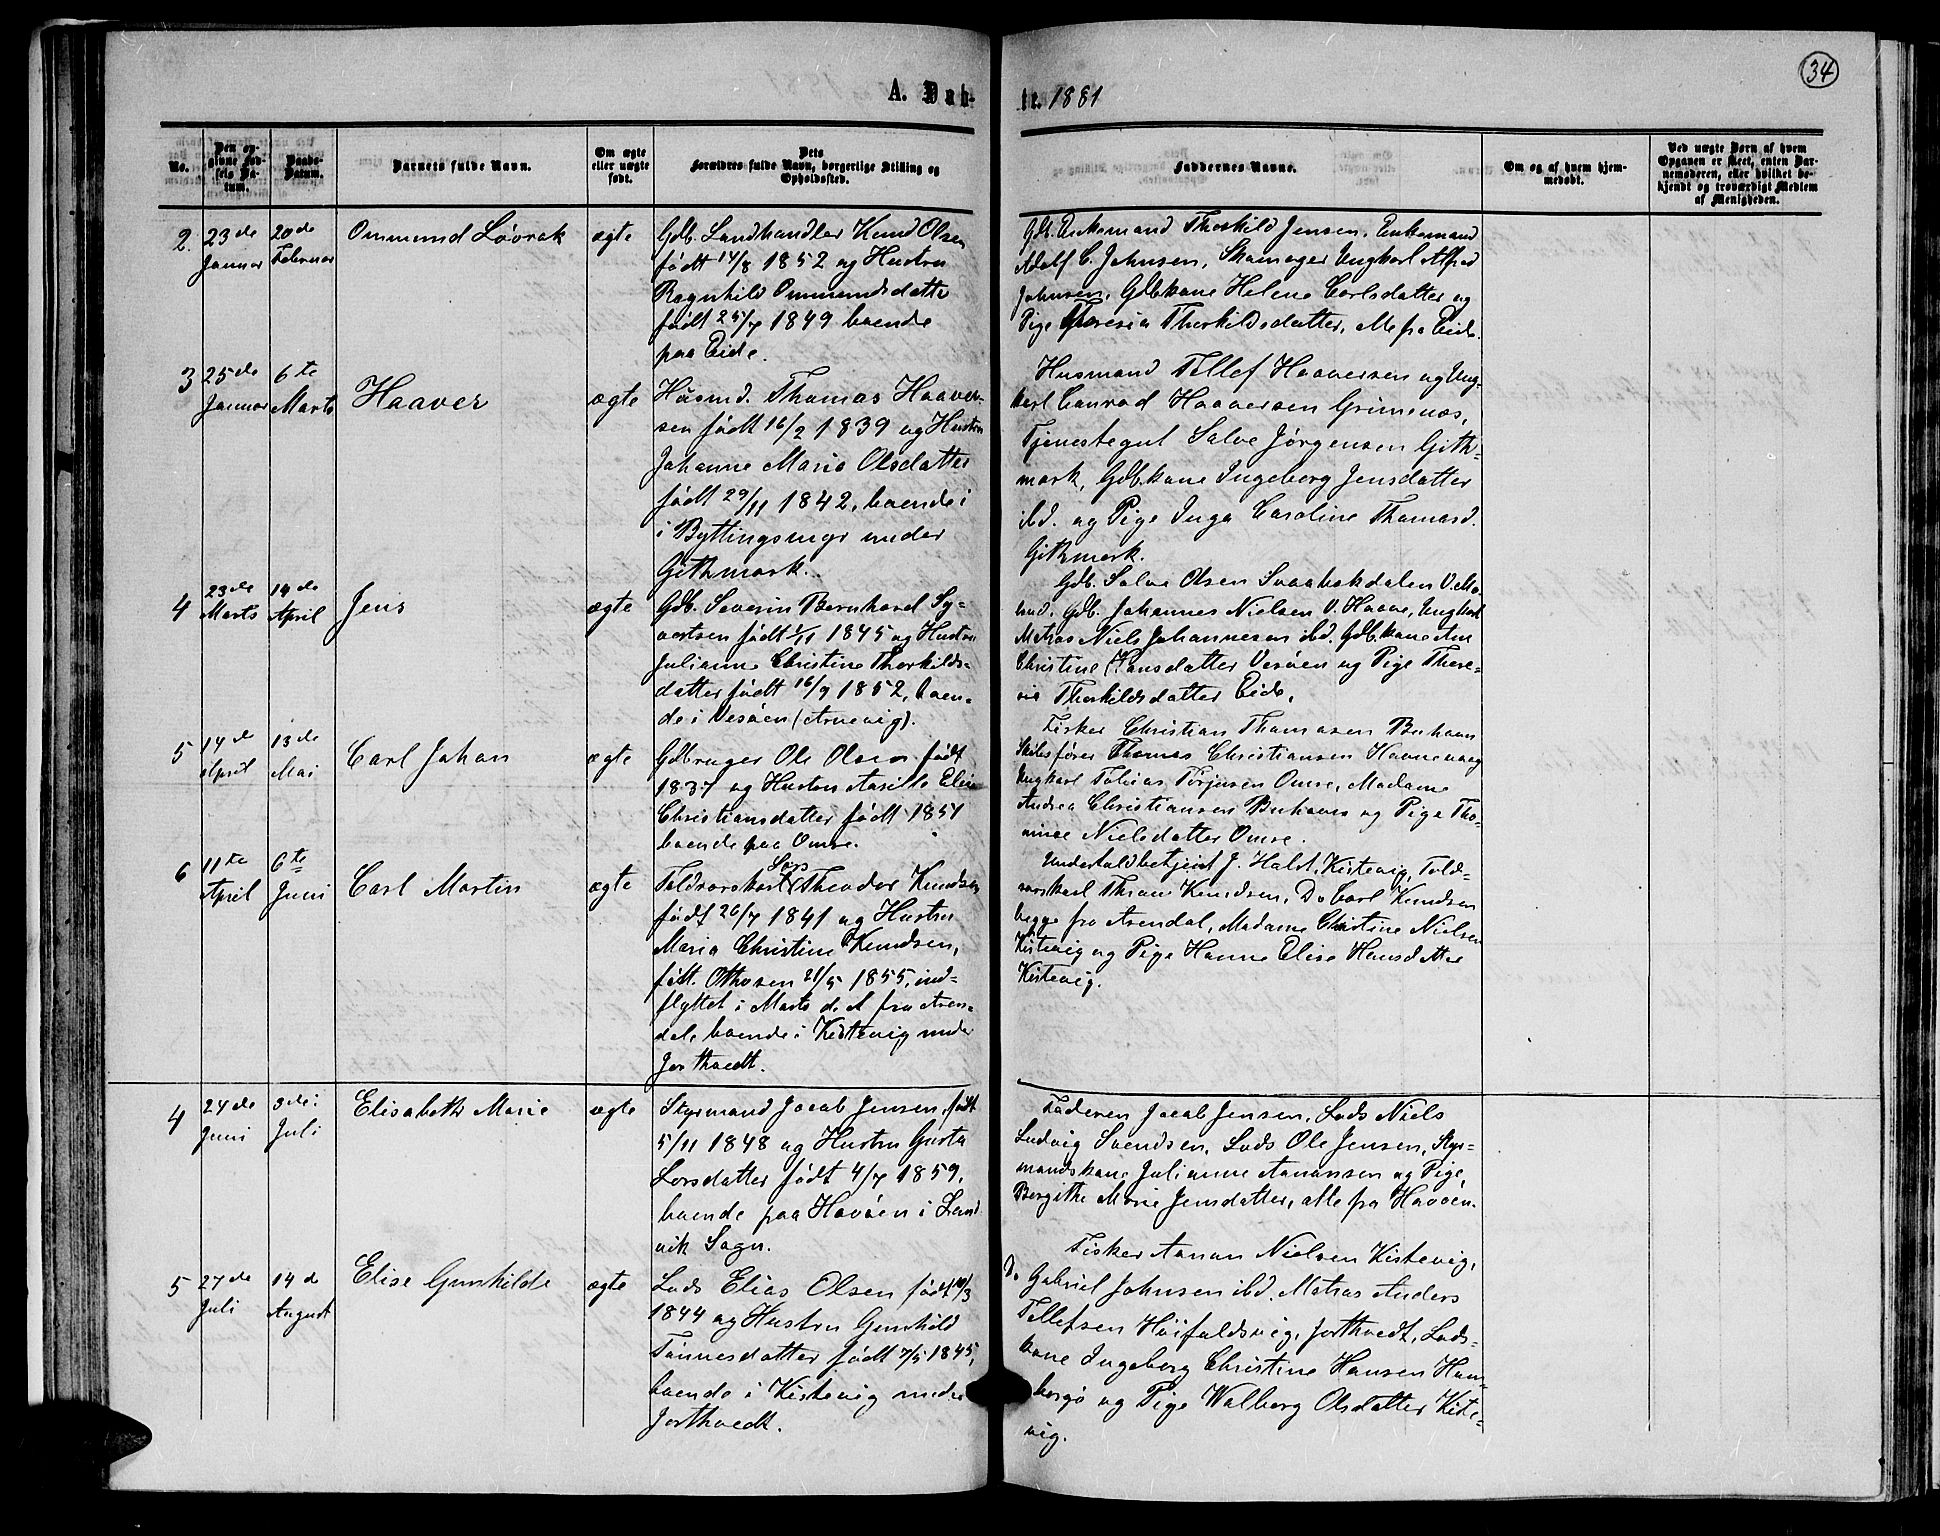 34
A. Døb-
te. 1881
No.
Den op-
givne Fød-
sels Da-
tum.
Daabs-
Datum.
Barnets fulde Navn.
Om ægte
eller uægte
født.
Dets
Forældres fulde Navn, borgerlige Stilling og
Opholdssted.
Faddernes Navne.
Om og af hvem hjem-
medøbt.
Ved uægte Børn af hvem
Opgaven er skeet, enten Bar-
nemoderen, eller hvilket be-
kjendt og troværdigt Medlem
af Menigheden.
2.
23de
Januar
20de
Februar
Ommund Løvrak
ægte
Gdb. Landhandler Knud Olsen
født 14/8 1852 og Hustru
Ragnhild Ommundsdatter
født 25/7 1849 boende
paa Eide.
Gdb. Enkemand Thorkild Jensen, Enkemand
Adolf C. Johnsen, Skomager Ungkarl Alfred
Johnsen, Gdbkone Helene Carlsdatter og
Pige Theresia Thorkildsdatter, alle fra Eide.
3
25de
Januar
6te
Marts
Haaver
ægte
Husmd. Thomas Haaver-
sen født 16/2 1839 og Hustru
Johanne Marie Olsdatter
født 29/11 1842, boende i
i Byttingsmyr under
Githmark.
Husmand Tellef Haaversen og Ung-
karl Conrad Haaversen Grimenes,
Tjenestegut Salve Jørgensen Gith-
mark, Gdbkone Ingeborg Jensdatter
ibd. og Pige Inga Caroline Thomasd.
Githmark.
4
23de
Marts
14de
April
Jens
ægte
Gdb. Severin Bernhard Sy-
vertsen født 1/11 1845 og Hustru
Julianne Christine Thorkilds-
datter født 16/9 1852, boen-
de i Vesøen (Arnevig).
Gdb. Salve Olsen Svaabekdalen V. Mo-
land, Gdb. Johannes Nielsen V. Haave, Ungkarl
Matros Niels Johannesen ibd. Gdbkone Ane
Christine Hansdatter Vesøen og Pige There-
sie Thorkildsdatter Eide.
5
14de
April
13de
Mai
Carl Johan
ægte
Gdbruger Ole Olsen født
1837 og Hustru Aasille Elise
Christiansdatter født 1851
boende paa Omre.
Fisker Christian Thomasen Buhavn
Skibsfører Thomas Christiansen Havnevaag
Ungkarl Tobias Tørjusen Omre, Madame
Andrea Christiansen Buhavn og Pige Tho-
mine Nielsdatter Omre.
6
11te
April
6te
Juni
Carl Martin
ægte
Toldrorskarl Lars Theodor Knudsen
født 26/7 1841 og Hustru
Maria Christine Knudsen,
født Othosen 21/5 1855, ind-
flyttet i Marts d. A fra Aren-
dal, boende i Kistevig under
Jorthvedt.
Undertoldbetjent J. Halst, Kistevig, Told-
rorskarl Thrane Knudsen, Do Carl Knudsen
begge fra Arendal, Madame Christine Nielsen
Kistevig og Pige Hanne Elise Hansdatter
Kistevig.
4
24de
Juni
3de
Juli
Elisabeth Marie
ægte
Styrmand Jacob Jensen, født
5/11 1848 og Hustru Gusta
Larsdatter født 4/7 1859,
boende paa Havøen i Land-
vik Sogn.
Faderen Jacob Jensen, Lods Niels
Ludvig Svendsen, Lods Ole Jensen, Styr-
mandskone Julianne Aanonsen og Pige,
Bergithe Marie Jensdatter, alle fra Havøen.
5
27de
Juli
14de
August
Elise Gunhilde
ægte
Lods Elias Olsen født 10/3
1844 og Hustru Gunhild
Tønnesdatter født 7/5 1845,
boende i Kistevig under
Jorthvedt.
Fisker Aanon Nielsen Kistevig,
Do Gabriel Johnsen ibd. Matros Anders
Tellefsen Høifaldsvig, Jorthvedt, Lods-
kone Ingeborg Christine Hansen Ham-
borgø og Pige Walborg Olsdatter Kiste-
vig.